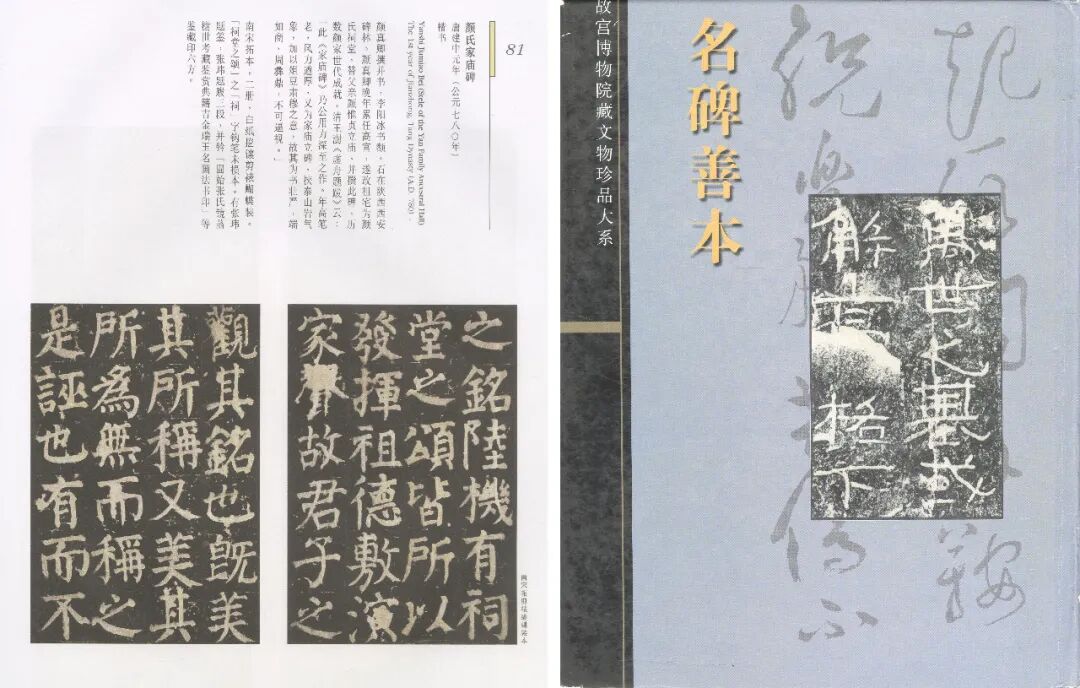 81
颜氏家庙碑
唐建中元年(公元七八〇年)
楷书
Yanshi Jiamiao Bei (Stele of the Yan Family Ancestral Hall)
The 1st year of Jianzhong, Tang Dynasty (A.D. 780)
颜真卿撰并书,李阳冰书额。石在陕西西安
碑林。颜真卿晚年累任高官,遂改祖宅为颜
氏祠堂,替父亲颜惟贞立庙,并撰此碑,历
数颜家世代成就。清王澍《虚舟题跋》云:
「此《家庙碑》乃公用力深至之作。年高笔
老,风力遒厚,又为家庙立碑,挟泰山岩气
象,加以俎豆肃穆之意,故其为书庄严端
如商、周彝鼎,不可逼视。」
南宋拓本,二册,白纸挖镶剪裱蝴蝶装。
「祠堂之颂」之「祠」字钩笔未损本。有张玮
题签,张玮题跋二段,并钤「固始张氏镜菡
榭世考藏鉴赏典籍吉金瑞玉名画法书印」等
鉴藏印六方。
之銘陸機有祠
堂之頌皆所以
發揮祖德敷演
家聲故君子之
觀其銘也既美
其所稱又美其
所為無而稱之
是誣也有而不
故宫博物院藏文物珍品大系
名碑善本
萬世之基或
解高格下